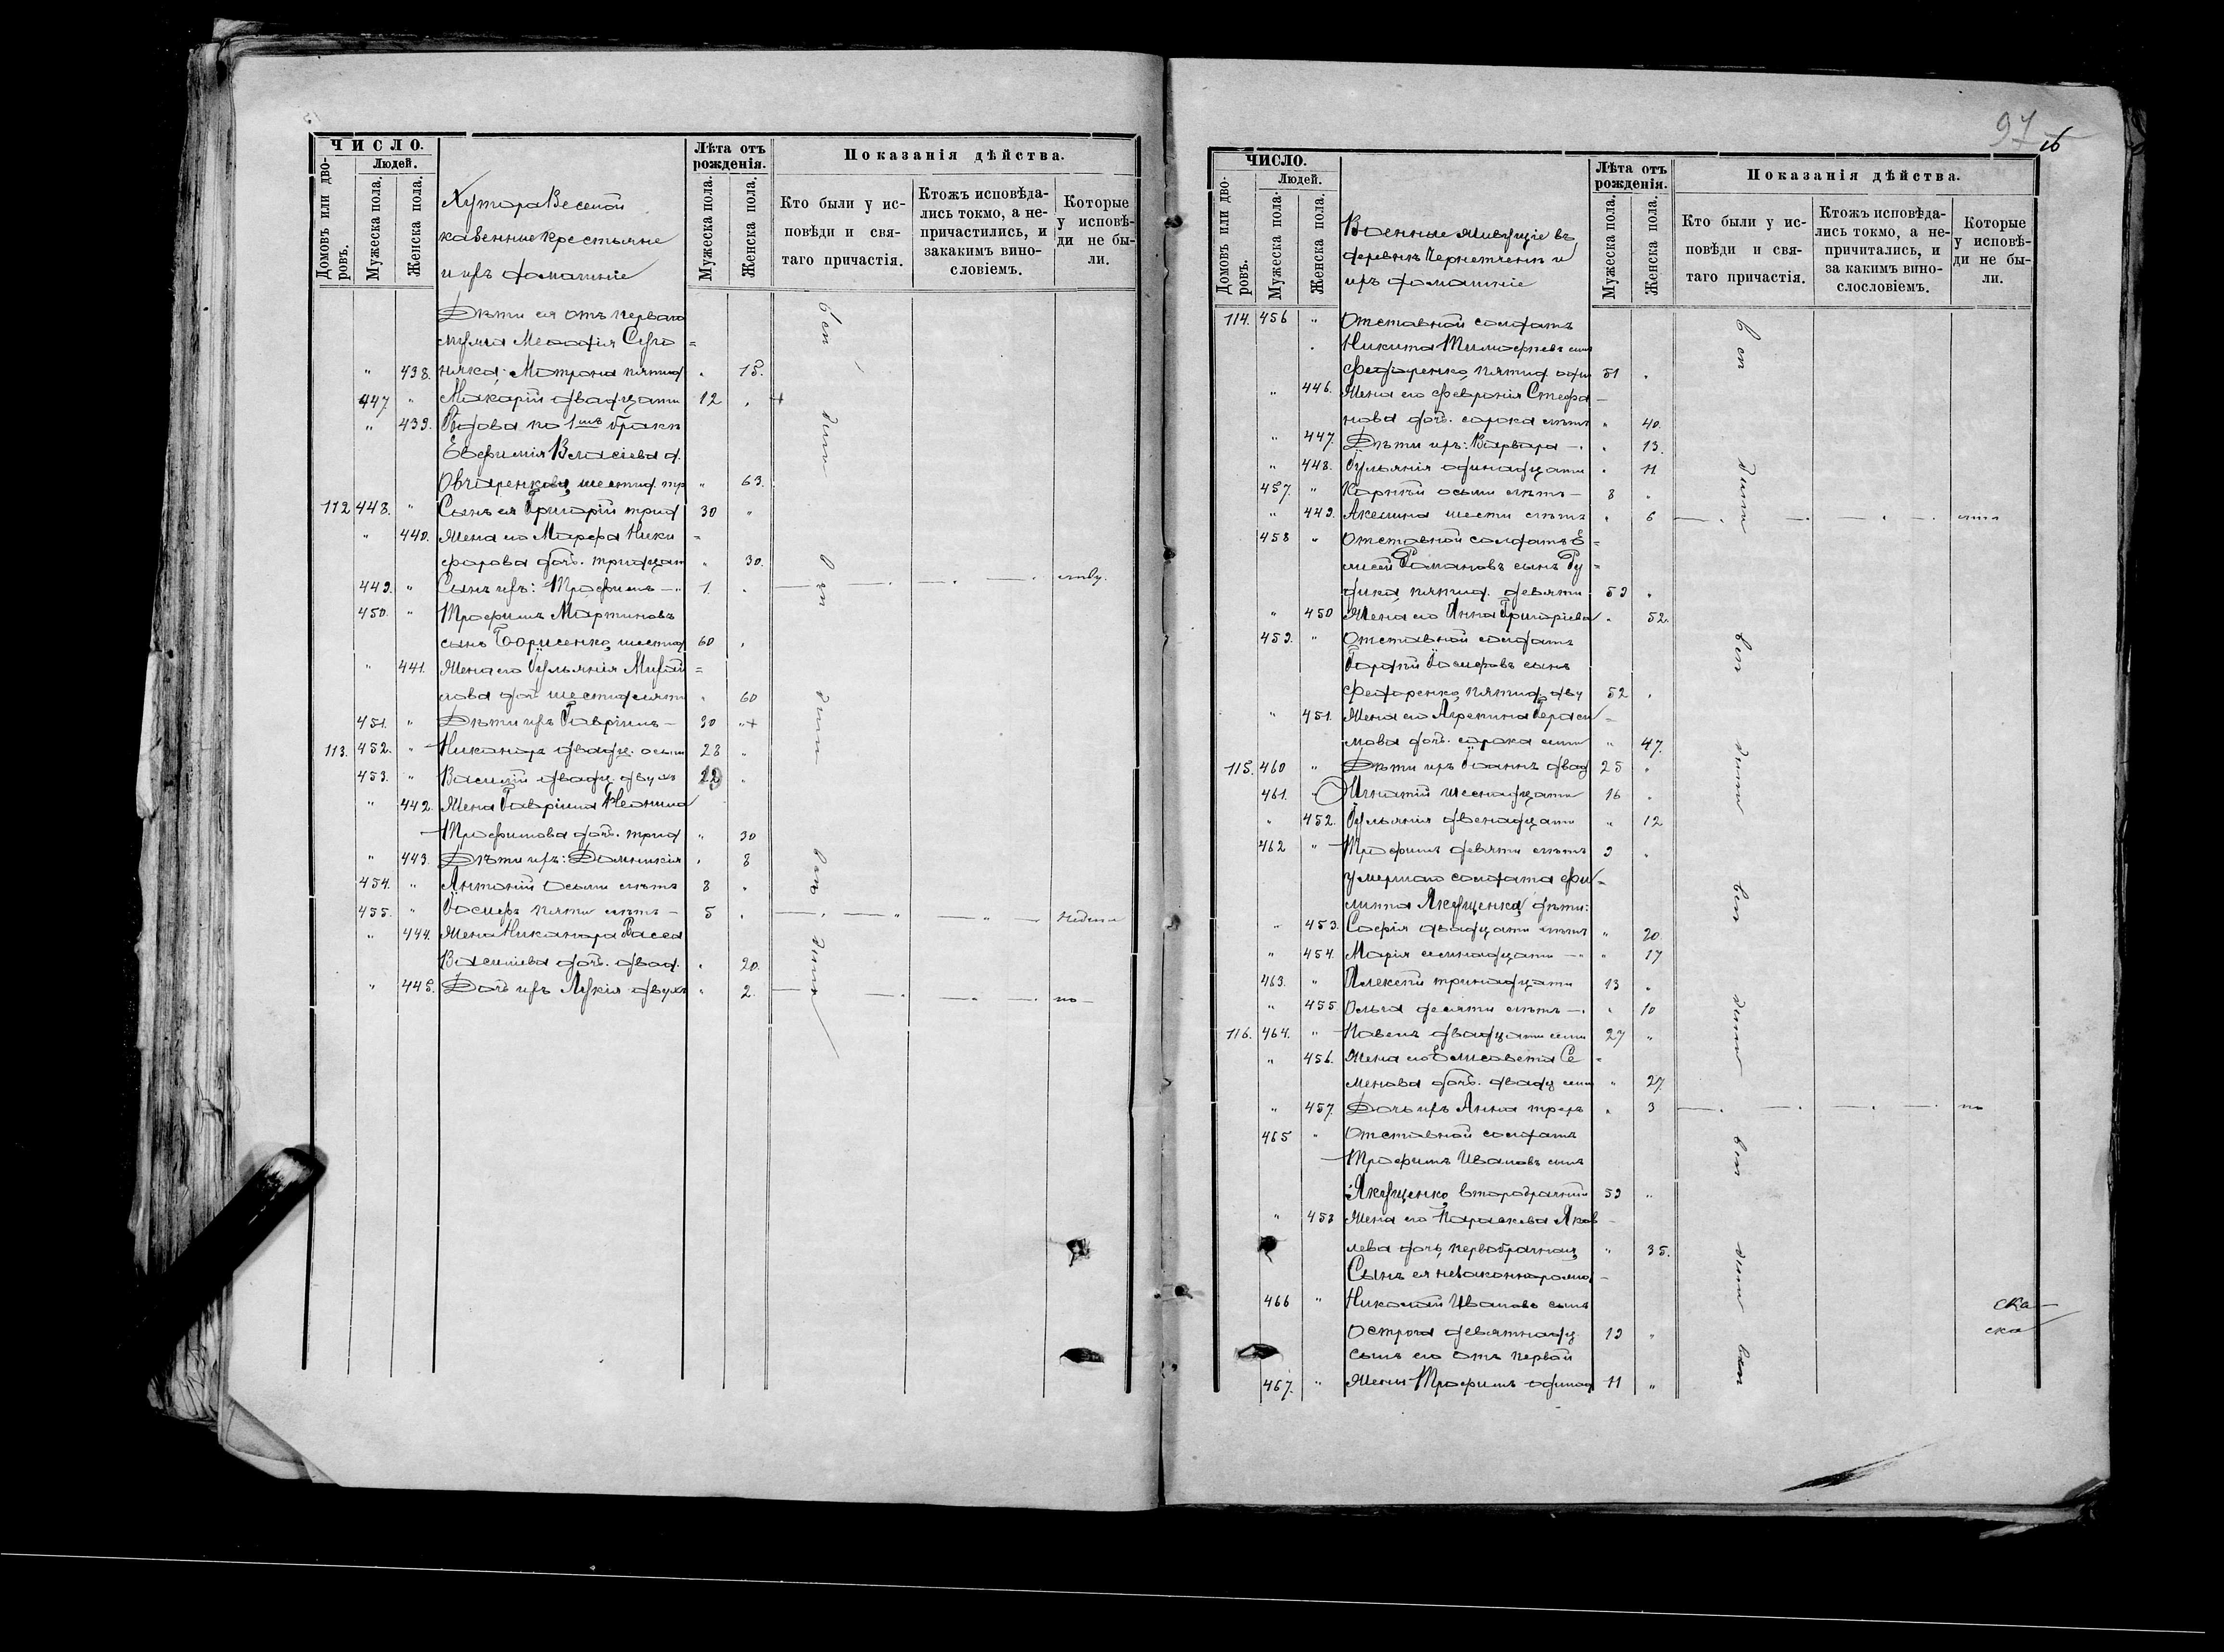 ЧИСЛО.
Людей.
Домовъ или дворовъ.
Мужеска пола.
Женска пола.
Хутора Веселой
казенные крестьяне
и ихъ домашніе
Лѣта отъ рожденія.
Мужеска пола.
Женска пола.
Показанія дѣйства.
Кто были у исповѣди и святаго причастія.
Ктожъ исповѣдались токмо, а непричастились, и закакимъ винословіемъ.
Которые у исповѣди не были.
Дѣти ея отъ перваго
мужа
" 438. Матрона пятнад " 15.
447. " Макарій двадцати 12 "
" 439. Вдова по 1мъ бракѣ
Евфимія Власіева д.
Овчаренкова, шестид. тр " 63.
112 448. " Сынъ ея Григорій трид 30 "
" 440. Жена его Марфа Ники=
форова дочь. тридцати " 30.
449. " Сынъ ихъ: Трофимъ — 1. "
450. " Трофимъ Мартиновъ
сынъ Борисенко, шестид 60 "
" 441. Жена его Іульянія Михай=
лова доч. шестидесяти " 60
451. " Дѣти ихъ Гавріилъ — 30 "
113. 452. " Никаноръ двадц. осьми 28 "
453. " Василій двадц. двухъ
" 442. Жена Гавріила
Трофимова дочь. трид " 30
" 443. Дѣти ихъ: Домникія " 8
454. " Антоній осьми лѣтъ 8 "
455. " Іосифъ пяти лѣтъ — 5 "
" 444. Жена Никанора
Василіева дочь. двад. " 20.
" 445. Дочь ихъ Лукія двухъ " 2. по —
97
ЧИСЛО.
Людей.
Домовъ или дворовъ.
Мужеска пола.
Женска пола.
Военные живущіе въ
деревнѣ Чернетченѣ и
ихъ домашніе
Лѣта отъ рожденія.
Мужеска пола.
Женска пола.
Показанія дѣйства.
Кто были у исповѣди и святаго причастія.
Ктожъ исповѣдались токмо, а непричитались, и за какимъ винослословіемъ.
Которые у исповѣди не были.
114. 456 " Отставной солдатъ
Никита Тимофѣевъ сынъ
Федоренко, пятид. один 51 "
" 446. Жена его Февронія Стефа—
нова дочь. сорока лѣтъ " 40.
" 447. Дѣти ихъ: Варвара — " 13.
" 448. Іульянія одинадцати " 11
457. " Корнѣй осьми лѣтъ — 8 "
" 449. Акелина шести лѣтъ " 6
458 " Отставной солдатъ Е=
лисей Романовъ сынъ Ру=
дика пятид. девяти 59 "
" 450 Жена его Анна Григоріева " 52.
459. " Отставной солдатъ
Гордѣй Іосифовъ сынъ
Федоренко, пятид. дву 52 "
" 451. Жена его Агрепина Гераси—
мова дочь. сорока семи " 47.
115. 460 " Дѣти ихъ Іоаннъ двад 25 "
461. " Игнатій шеснадцати 16 "
" 452. Іульянія двенадцати " 12
462 " Трофимъ девяти лѣтъ 9 "
умершаго солдата Фи=
липа Якущенка, дѣти:
" 453. Софія двадцати лѣтъ " 20.
" 454. Марія семнадцати — " 17
463. " Алексѣй тринадцати 13 "
" 455 Ольга десяти лѣтъ — " 10
116. 464. " Павелъ двадцати семи 27 "
" 456. Жена его Елисавета Се=
менова дочь. двадц семи " 27.
" 457. Дочь ихъ Анна трехъ " 3 по
465 " Отставной солдатъ
Трофимъ Ивановъ сынъ
Якущенко, второбрачный 59 "
" 458 Жена его Параскева Яков—
лева дочь, первобрачная, " 35.
Сынъ ея незаконнорожд—
466 " Николай Ивановъ сынъ
Острога девятнадц. 19 "
сынъ его отъ первой
467. " Жены Трофимъ одинад 11 "